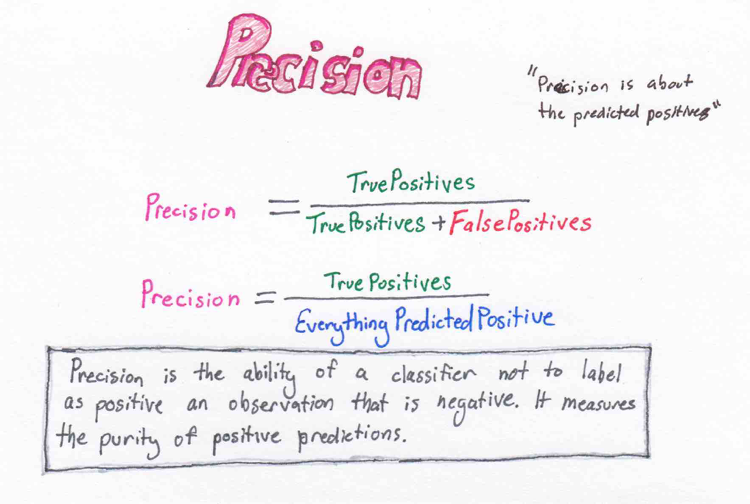 Precision
"Precision is about
the predicted positives"
Precision = TruePositives
TruePositives + FalsePositives
Precision = True Positives
Everything Predicted Positive
Precision is the ability of a classifier not to label
as positive an observation that is negative. It measures
the purity of positive predictions.